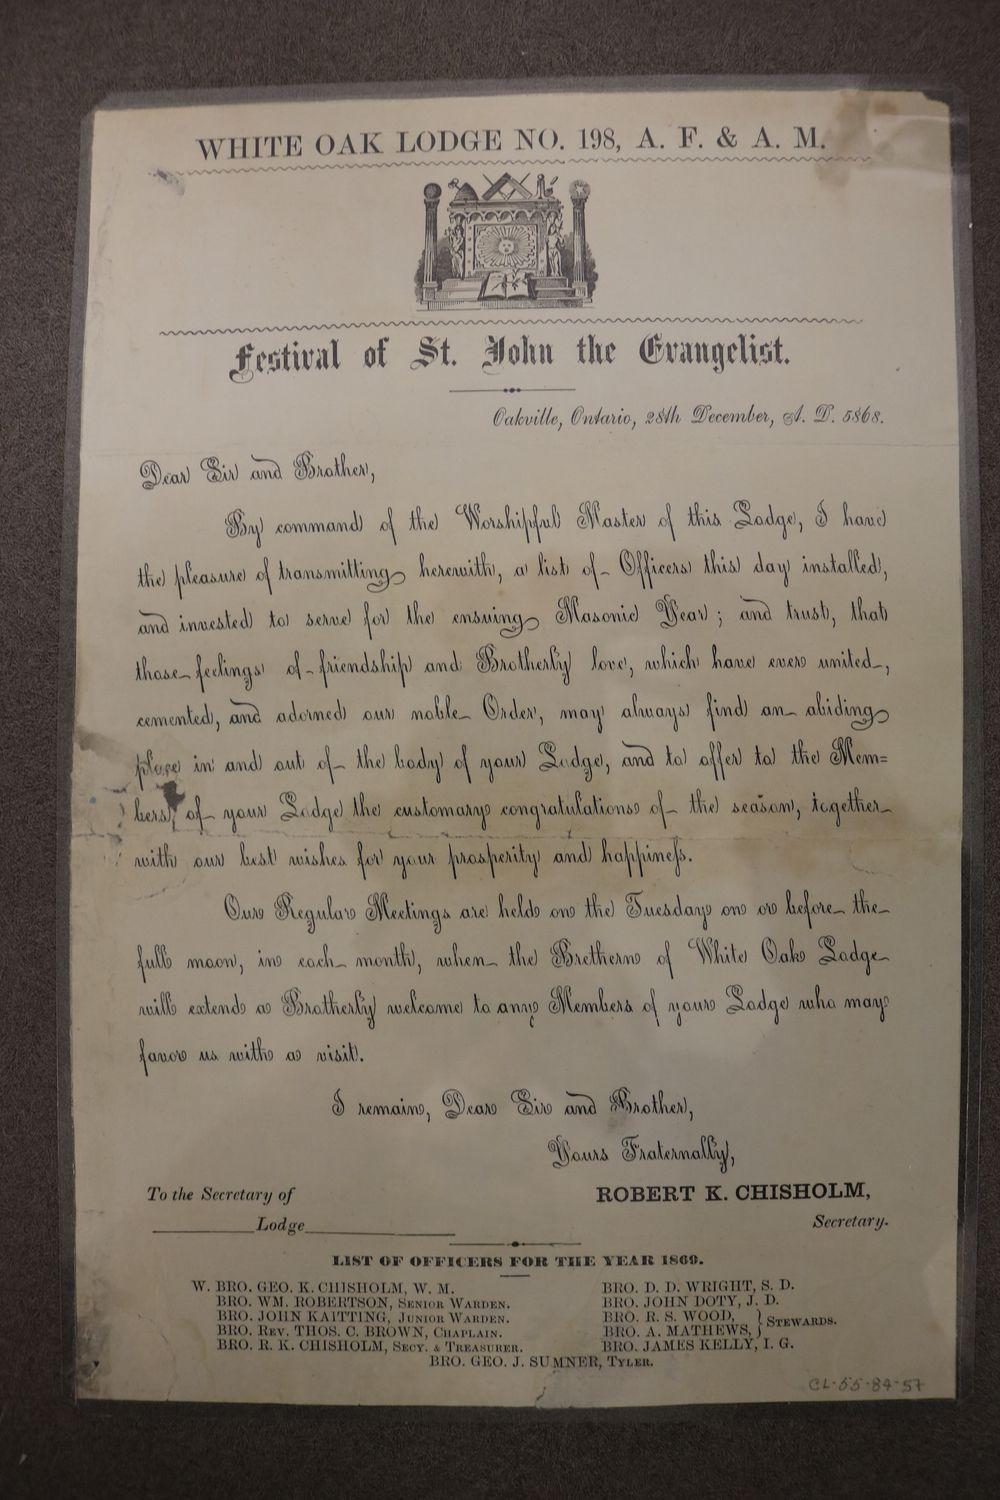 WHITE OAK LODGE NO. 198, A. F. & A. M.
Festival of St. John the Evangelist.
Oakville, Ontario, 28th December, A. D. 5868.
Dear Sir and Brother,
By command of the Worshipful Master of this Lodge, I have
the pleasure of transmitting herewith, a list of Officers this day installed,
and invested to serve for the ensuing Masonic Year; and trust, that
those feelings of friendship and Brotherly love, which have ever united,
cemented, and adorned our noble Order, may always find an abiding
place in and out of the body of your Lodge, and to offer to the Mem=
bers, of your Lodge the customary congratulations of the season, together
with our best wishes for your prosperity and happiness.
Our Regular Meetings are held on the Tuesday on or before the
full moon, in each month, when the Brethern of White Oak Lodge
will extend a Brotherly welcome to any Members of your Lodge who may
favor us with a visit.
I remain, Dear Sir and Brother,
Yours Fraternally,
ROBERT K. CHISHOLM,
Secretary.
To the Secretary of
__________Lodge______________
LIST OF OFFICERS FOR THE YEAR 1869.
W. BRO. GEO. K. CHISHOLM, W. M.
BRO. WM. ROBERTSON, SENIOR WARDEN.
BRO. JOHN KAITTING, JUNIOR WARDEN.
BRO. REV. THOS. C. BROWN, CHAPLAIN.
BRO. R. K. CHISHOLM, SECY. & TREASURER.
BRO. D. D. WRIGHT, S. D.
BRO. JOHN DOTY, J. D.
BRO. R. S. WOOD,
BRO. A. MATHEWS, } STEWARDS.
BRO. JAMES KELLY, I. G.
BRO. GEO. J. SUMNER, TYLER.
CL-55-84-57